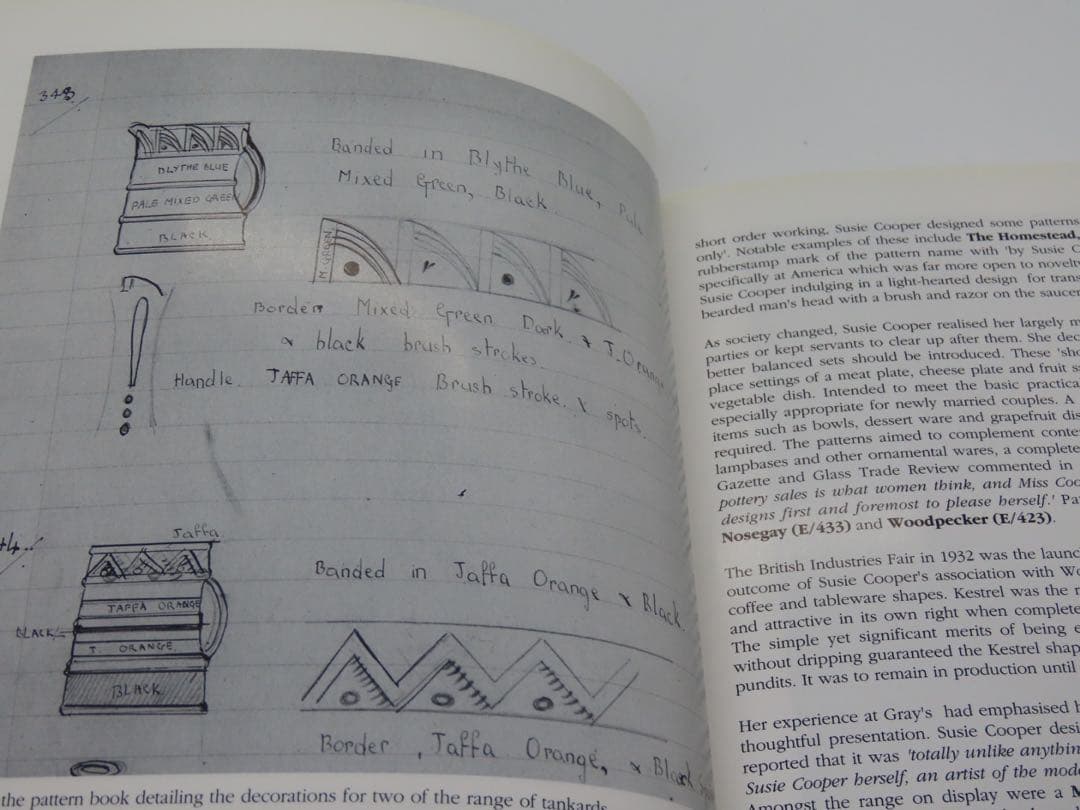 348
BLYTHE BLUE
PALE MIXED GREEN
BLACK
Banded in Blythe Blue, Pale
Mixed Green, Black
M. GREEN
Border Mixed Green Dark & J. Orange
& black brush strokes
Handle JAFFA ORANGE Brush stroke & spots.
Jaffa
JAFFA ORANGE
BLACK
J. ORANGE
BLACK
Banded in Jaffa Orange & Black.
Border, Jaffa Orange, & Black
the pattern book detailing the decorations for two of the range of tankards
short order working, Susie Cooper designed some patterns
only'. Notable examples of these include The Homestead,
rubberstamp mark of the pattern name with 'by Susie C
specifically at America which was far more open to novelty
Susie Cooper indulging in a light-hearted design for
bearded man's head with a brush and razor on the saucer
As society changed, Susie Cooper realised her largely
parties or kept servants to clear up after them. She
better balanced sets should be introduced. These
place settings of a meat plate, cheese plate and fruit
vegetable dish. Intended to meet the basic
especially appropriate for newly married couples. A
items such as bowls, dessert ware and grapefruit
required. The patterns aimed to complement
lampbases and other ornamental wares, a complete
Gazette and Glass Trade Review commented in
pottery sales is what women think, and Miss
designs first and foremost to please herself.'
Nosegay (E/433) and Woodpecker (E/423).
The British Industries Fair in 1932 was the
outcome of Susie Cooper's association with
coffee and tableware shapes. Kestrel was the
and attractive in its own right when complete
The simple yet significant merits of being
without dripping guaranteed the Kestrel
pundits. It was to remain in production until
Her experience at Gray's had emphasised
thoughtful presentation. Susie Cooper
reported that it was 'totally unlike
Susie Cooper herself, an artist of the
Amongst the range on display were a